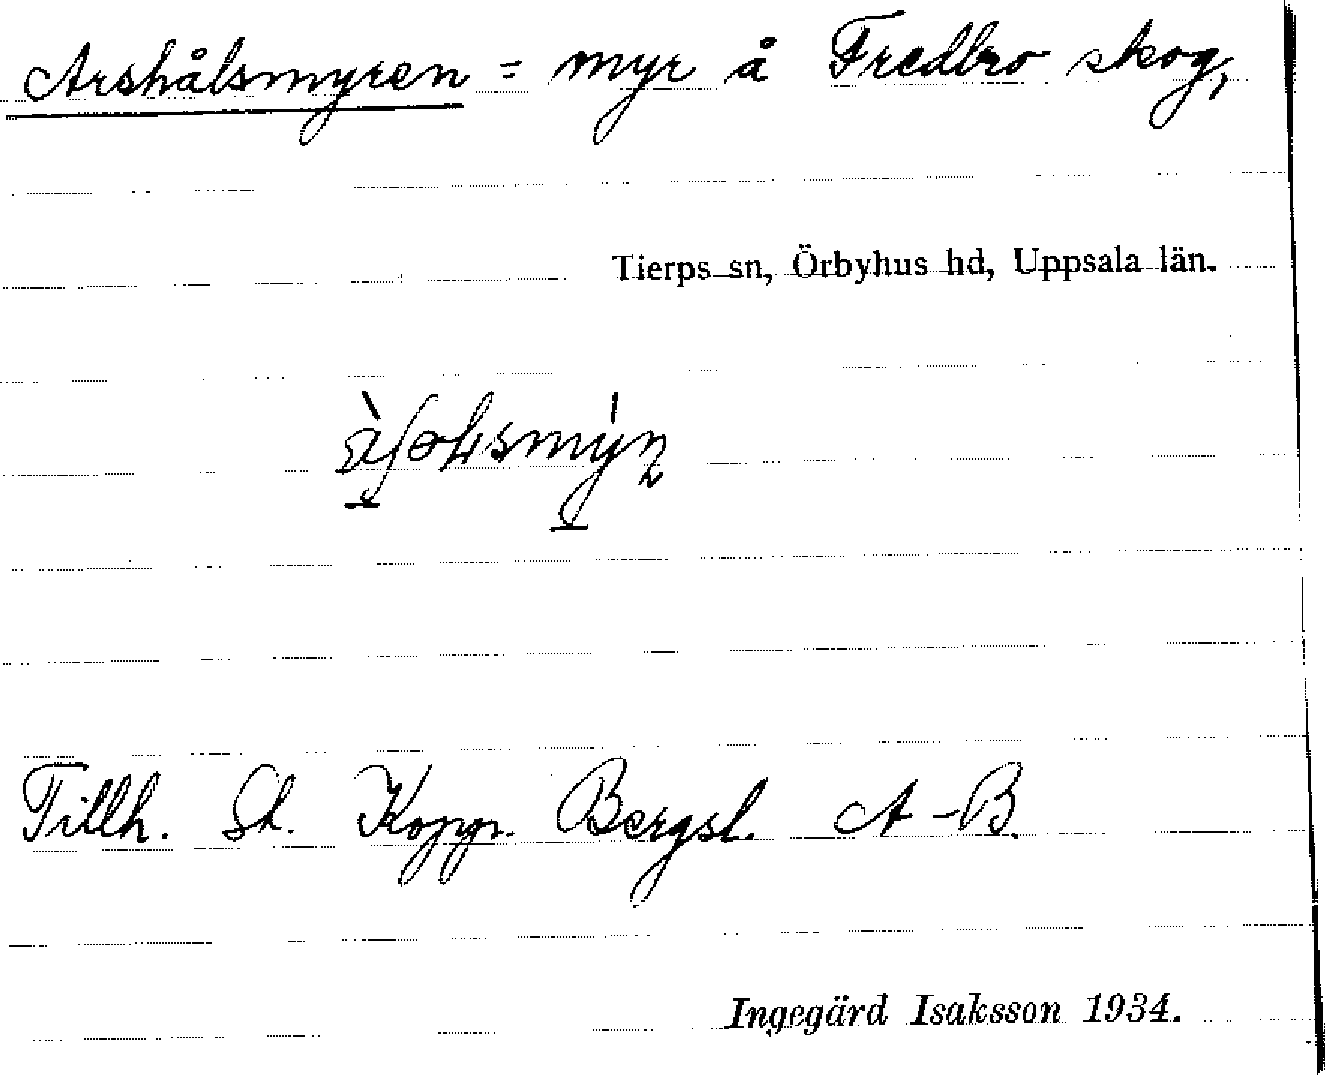 Arshålsmyren = myr å Fredbro skog,
Tierps sn, Örbyhus hd, Uppsala län.
Tillh. St. Kopp. Bergsl. A-B.
Ingegärd Isaksson 1934.